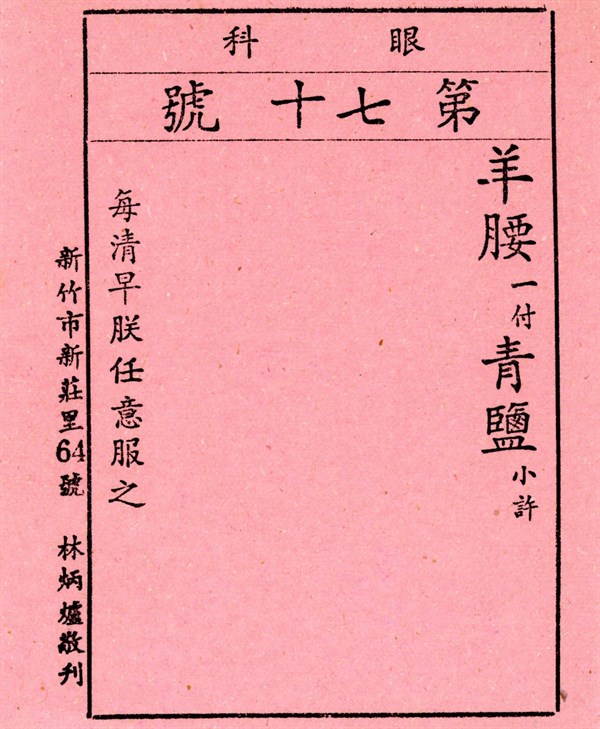 眼科
第七十號
羊腰一付青鹽小許
每清早朕任意服之
新竹市新莊里64號 林炳爐敬刋